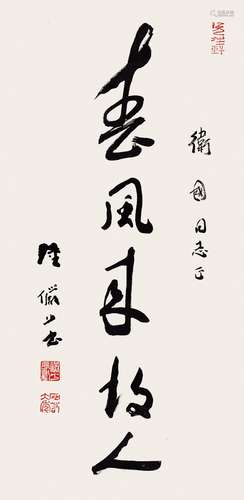 衛國同志正
春風來故人
陸儼少書